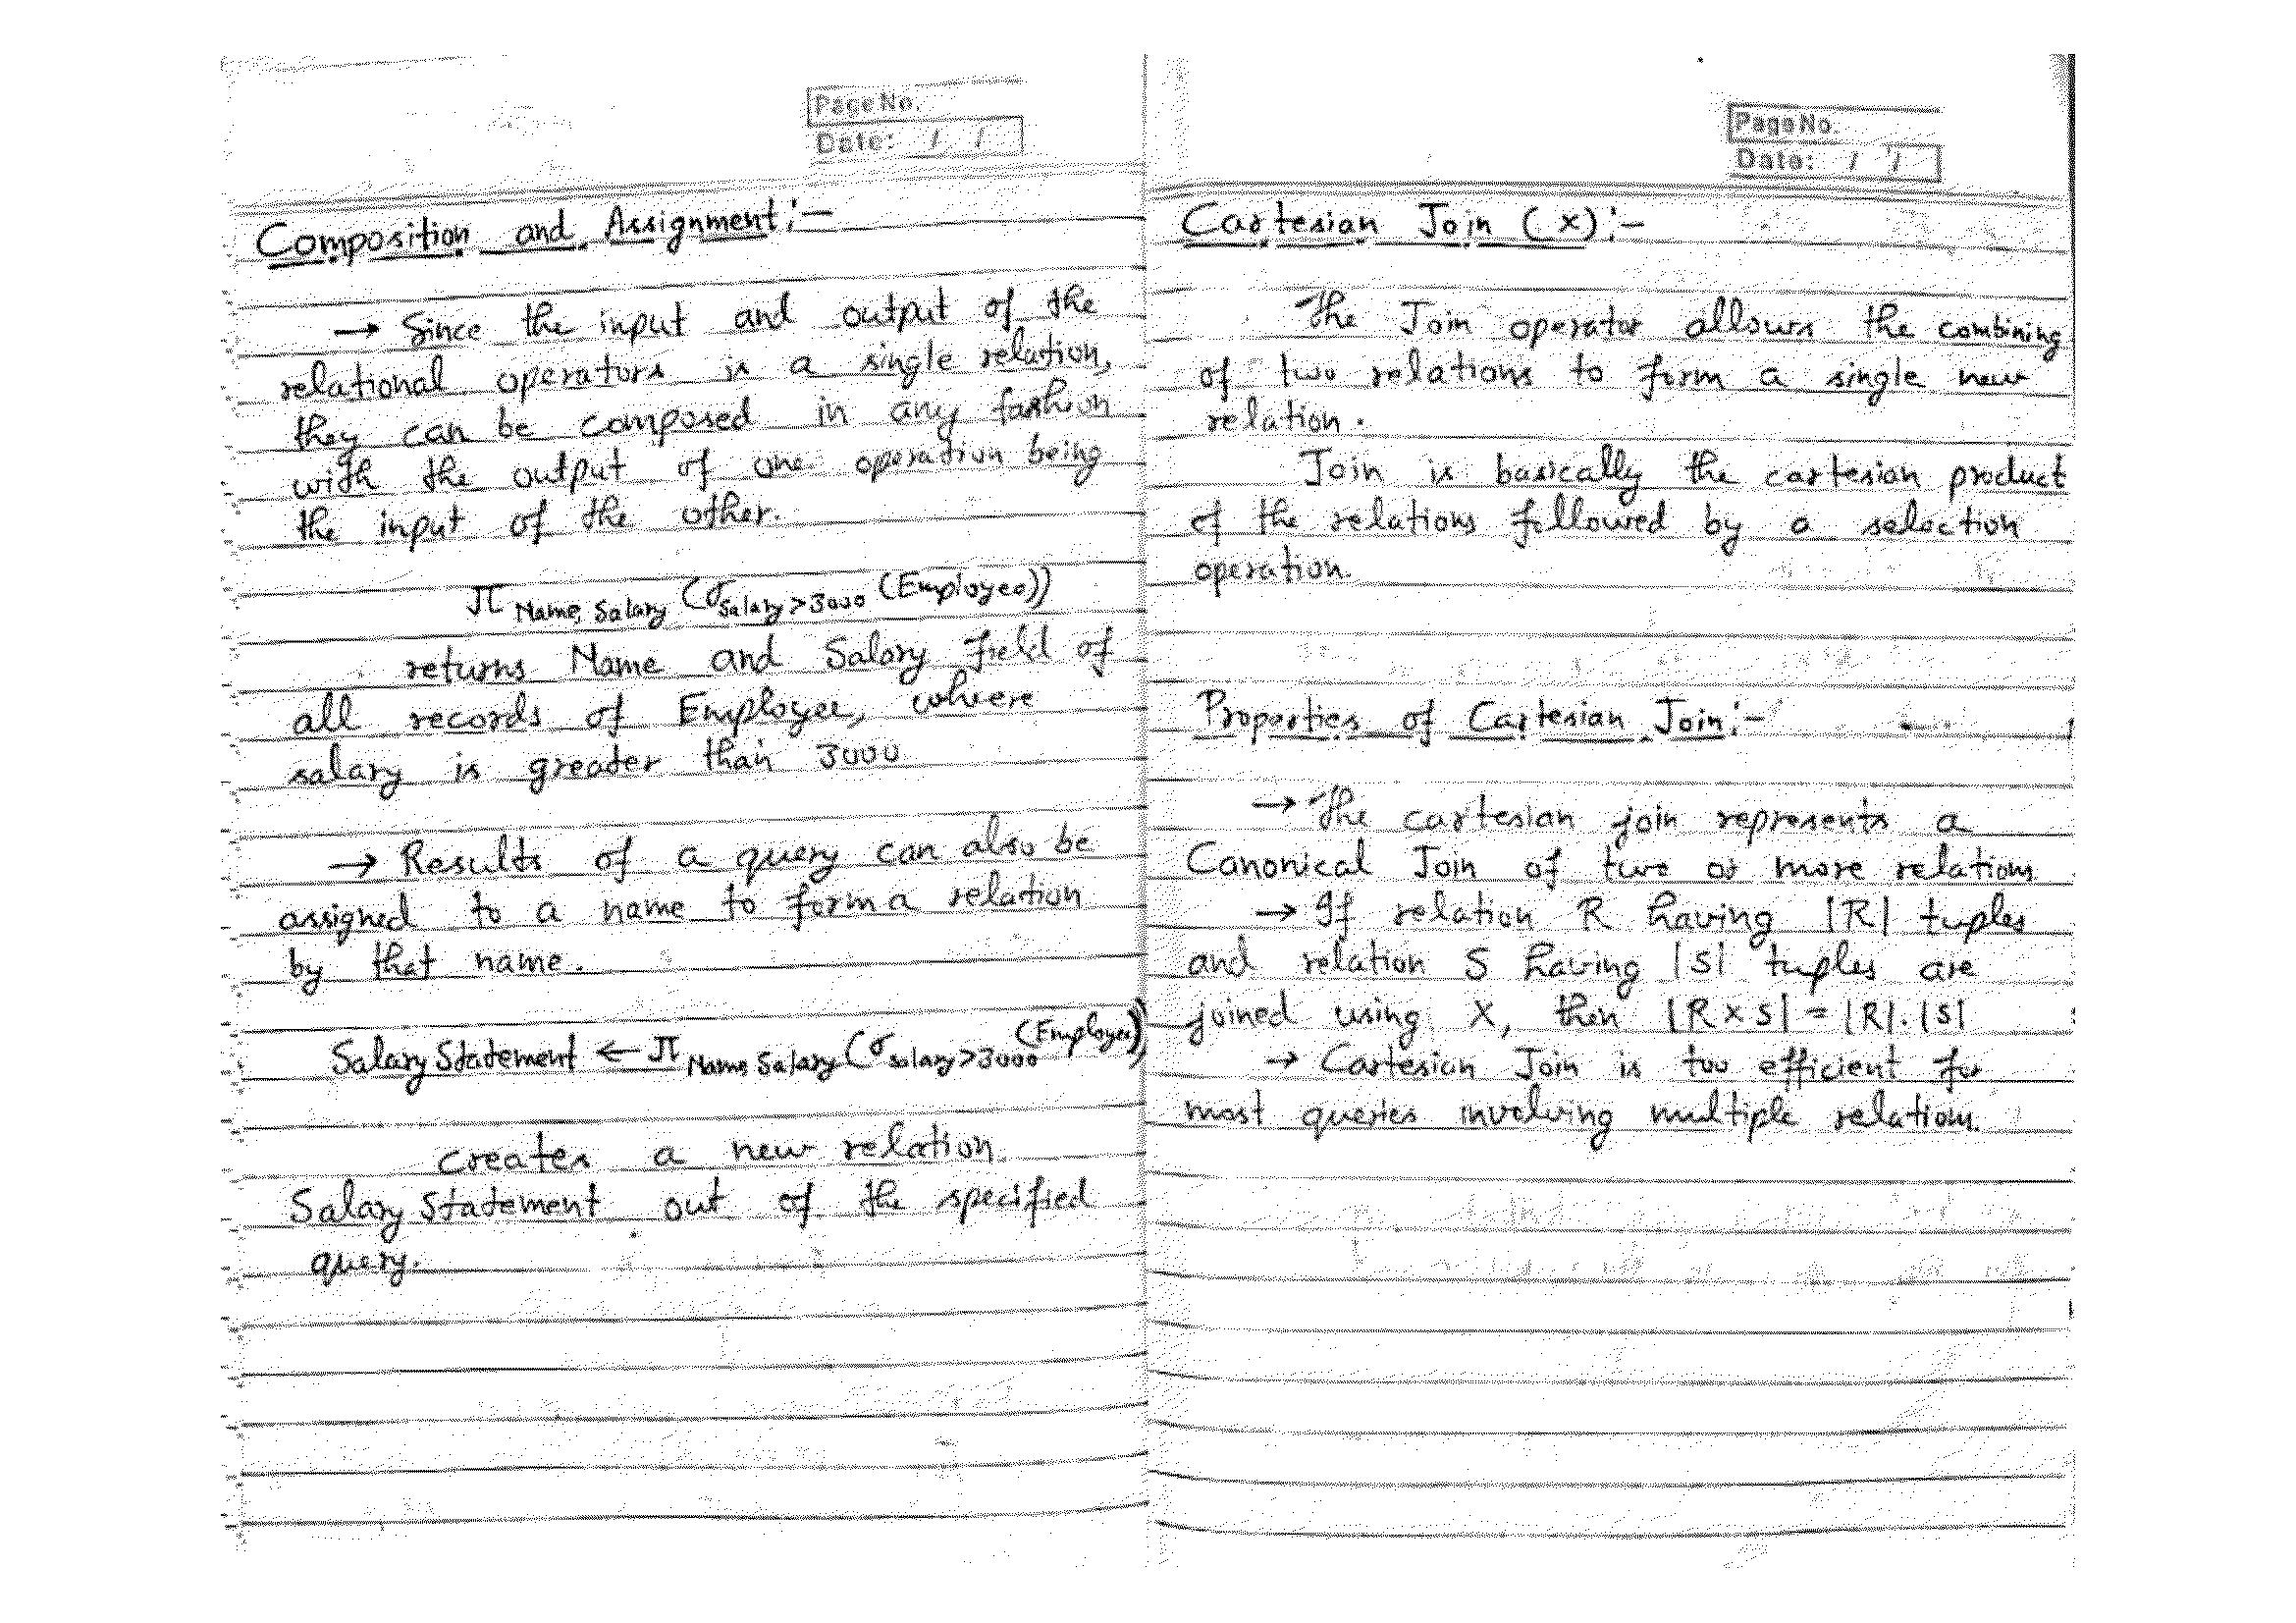 Page No.
Date: / /
Composition and Assignment:-
→ Since the input and output of the
relational operators is a single relation,
they can be composed in any fashion
with the output of one operation being
the input of the other.
π Name, Salary (σ Salary>3000 (Employee))
returns Name and Salary field of
all records of Employee, where
salary is greater than 3000
→ Results of a query can also be
assigned to a name to form a relation
by that name.
Salary Statement ← π Name, Salary (σ salary>3000 (Employee))
creates a new relation
Salary Statement out of the specified
query.
Page No.
Date: / /
Cartesian Join (X):-
The Join operator allows the combining
of two relations to form a single new
relation.
Join is basically the cartesian product
of the relations followed by a selection
operation.
Properties of Cartesian Join:-
→ The cartesian join represents a
Canonical Join of two or more relations
→ If relation R having |R| tuples
and relation S having |S| tuples are
joined using X, then |R x S| = |R|.|S|
→ Cartesian Join is too efficient for
most queries involving multiple relations.